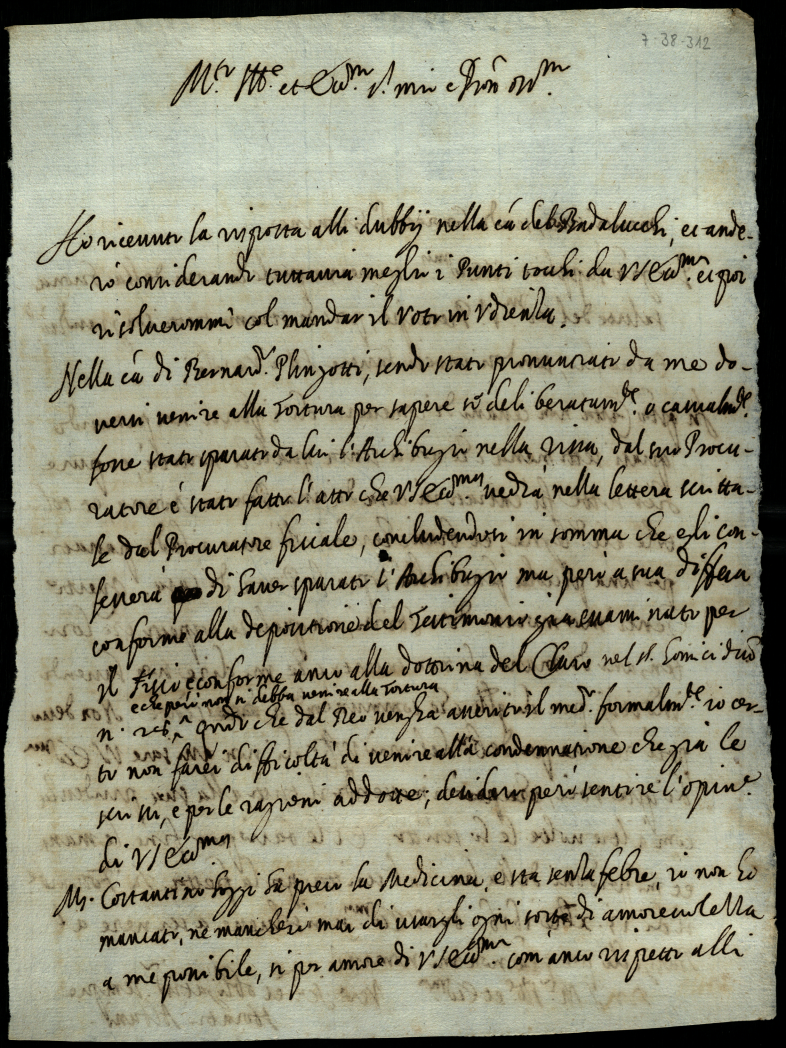 7-38-312
M.to Ill.re et Ecc.mo S.r mio e Pron oss.mo
Ho ricevuto la risposta alli dubbij nella cã deli Badalucchi, et ande-
rò considerando tuttavia meglio i Punti tochi da VS Ecc.ma et poi
risolverommi col mandar il Voto in Udienza.
Nella cã di Bernard.o Plinzotti, sendo stato pronunciato da me do-
versi venire alla Tortura per sapere se deliberatam.te o casualm.te
fosse stato sparato da lui l'Archibugio nella rissa, dal suo Procu-
ratore è stato fatto l'atto che VS Ecc.ma vedrà nella lettera scritta-
le dal Procuratore fiscale, concludendosi in somma che egli con-
fesserà di haver sparato l'Archibugio ma però a sua diffesa
conforme alla depositione del Testimonio già esaminato per
il Fisco e conforme anco alla dottrina del Claro nel §. homicidiũ
e che però non si debba venire alla Tortura
n. 26. quando che dal Reo venga asserito il med.o formalm.te io cer-
to non farei difficoltà di venire alla condennatione che già le
scrissi, e per le ragioni addotte, desidero però sentire l'opin.e
di VS Ecc.ma
M. Costantino Pozzi ha preso la Medicina, e sta senza febre, io non ho
mancato, ne mancherò mai di usargli ogni sorte di amorevolezza
a me possibile, si per amore di VS Ecc.ma com'anco rispetto alli